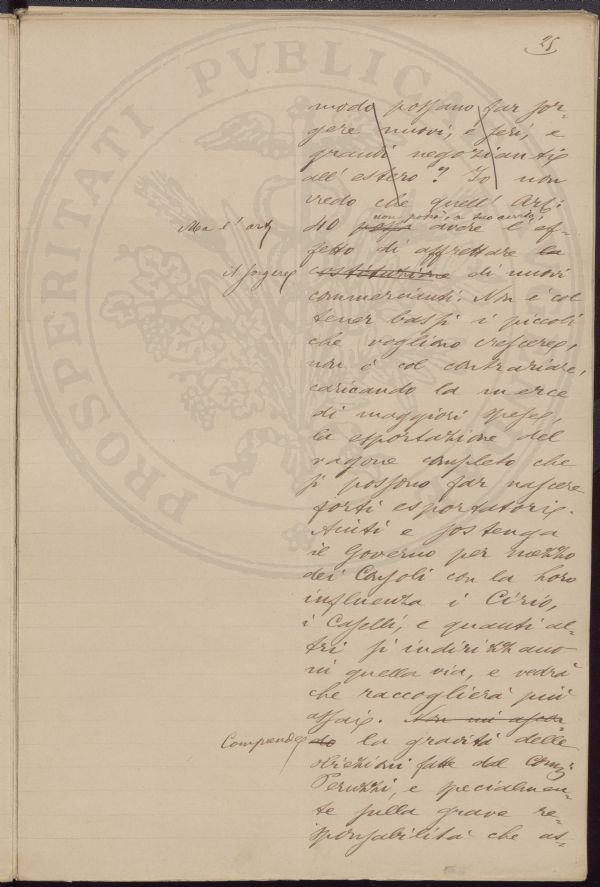 25
modo possano far sor-
gere nuovi, e seri, e
grandi negozianti
all'estero? Io non
vedo che quell'Art:
non potrà, a mio avviso,
Ma l'art 40 possa avere l'ef-
fetto di affrettare la
il sorgere costituzione di nuovi
commercianti. Non è col
tener bassi i piccoli
che vogliono crescere,
non è col contrariare,
caricando la merce
di maggiori spese,
la esportazione del
vagone completo che
si possono far nascere
forti esportatori.
Aiuti e sostenga
il Governo per mezzo
dei Consoli con la loro
influenza i Cirio,
i Caselli, e quanti al-
tri si indirizzano
in quella via, e vedrà
che raccoglierà più
assai. Non mi ascon-
Comprendo do la gravità delle
obiezioni fatte dal Comm:
Peruzzi, e specialmen-
te sulla grave re-
sponsabilità che as-
PROSPERITATI PVBLICAE